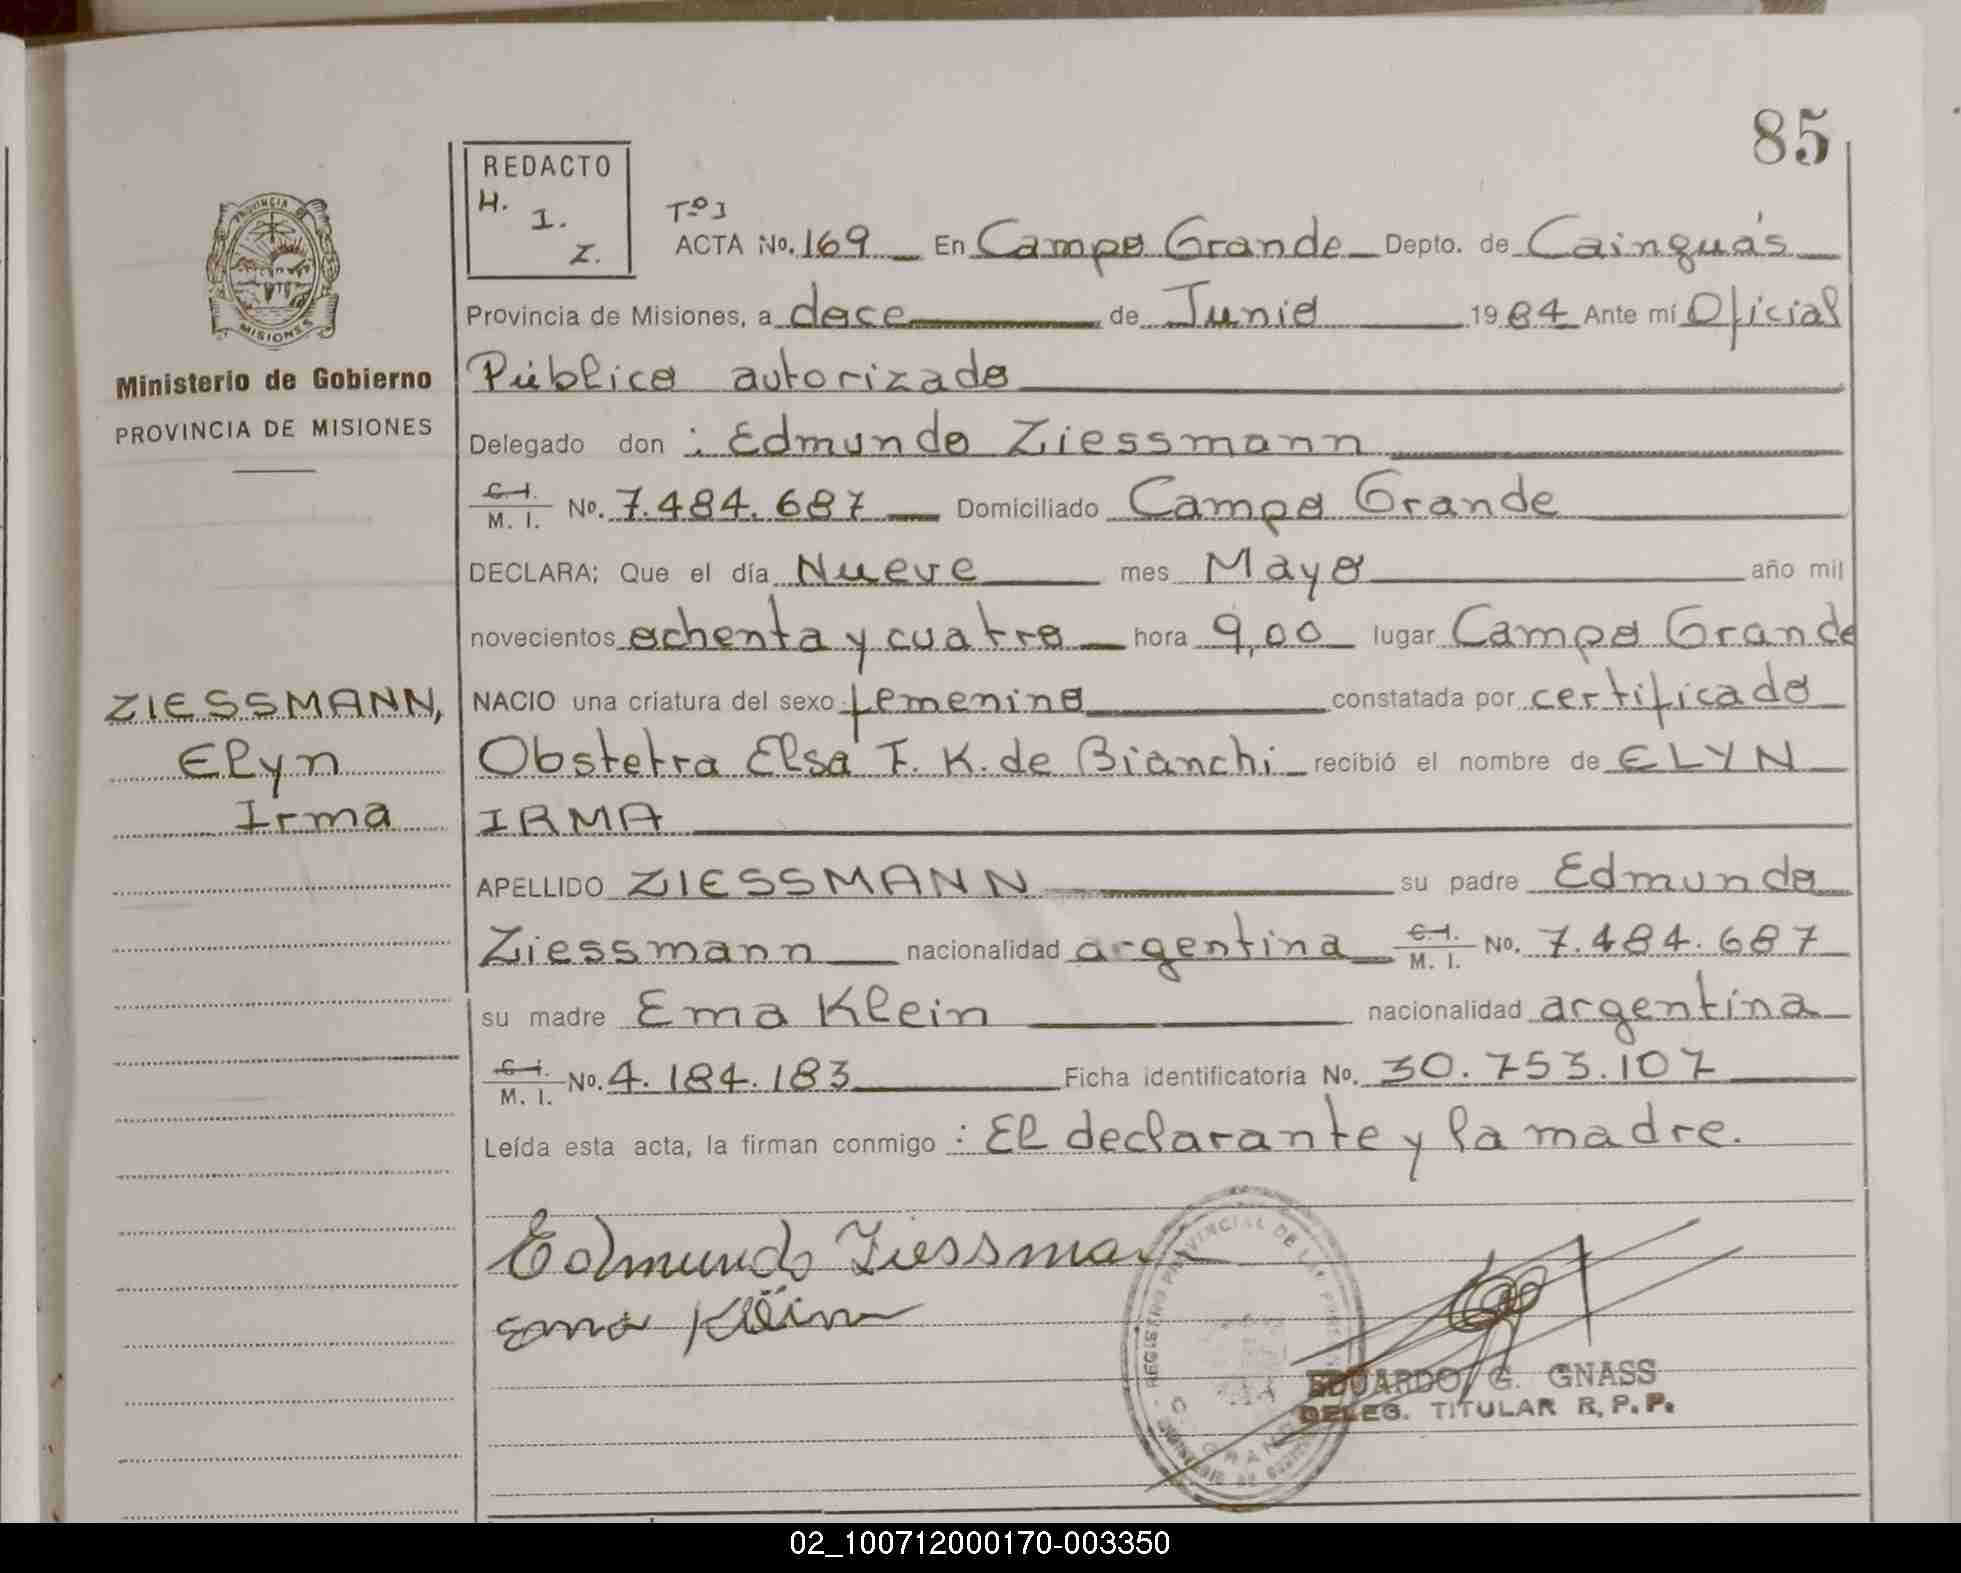 85
REDACTO
H.
I.
Z.
PROVINCIA DE
MISIONES
Ministerio de Gobierno
PROVINCIA DE MISIONES
Tº I
ACTA No. 169 En Campo Grande Depto. de Cainguás
Provincia de Misiones, a doce de Junio 1984 Ante mí Oficial
Público autorizado
Delegado don : Edmundo Ziessmann
C. I.
M. I. No. 7.484.687 Domiciliado Campo Grande
DECLARA; Que el día Nueve mes Mayo año mil
novecientos ochenta y cuatro hora 9,00 lugar Campo Grande
ZIESSMANN,
Elyn
Irma
NACIO una criatura del sexo femenino constatada por certificado
Obstetra Elsa F. K. de Bianchi recibió el nombre de ELYN
IRMA
APELLIDO ZIESSMANN su padre Edmundo
Ziessmann nacionalidad argentina C. I. M. I. No. 7.484.687
su madre Ema Klein nacionalidad argentina
C. I. M. I. No. 4.184.183 Ficha identificatoria No. 30.753.107
Leída esta acta, la firman conmigo : El declarante y la madre.
Edmundo Ziessman
Ema Klein
REGISTRO PROVINCIAL DE LAS
EDUARDO G. GNASS
DELEG. TITULAR R. P. P.
02_100712000170-003350